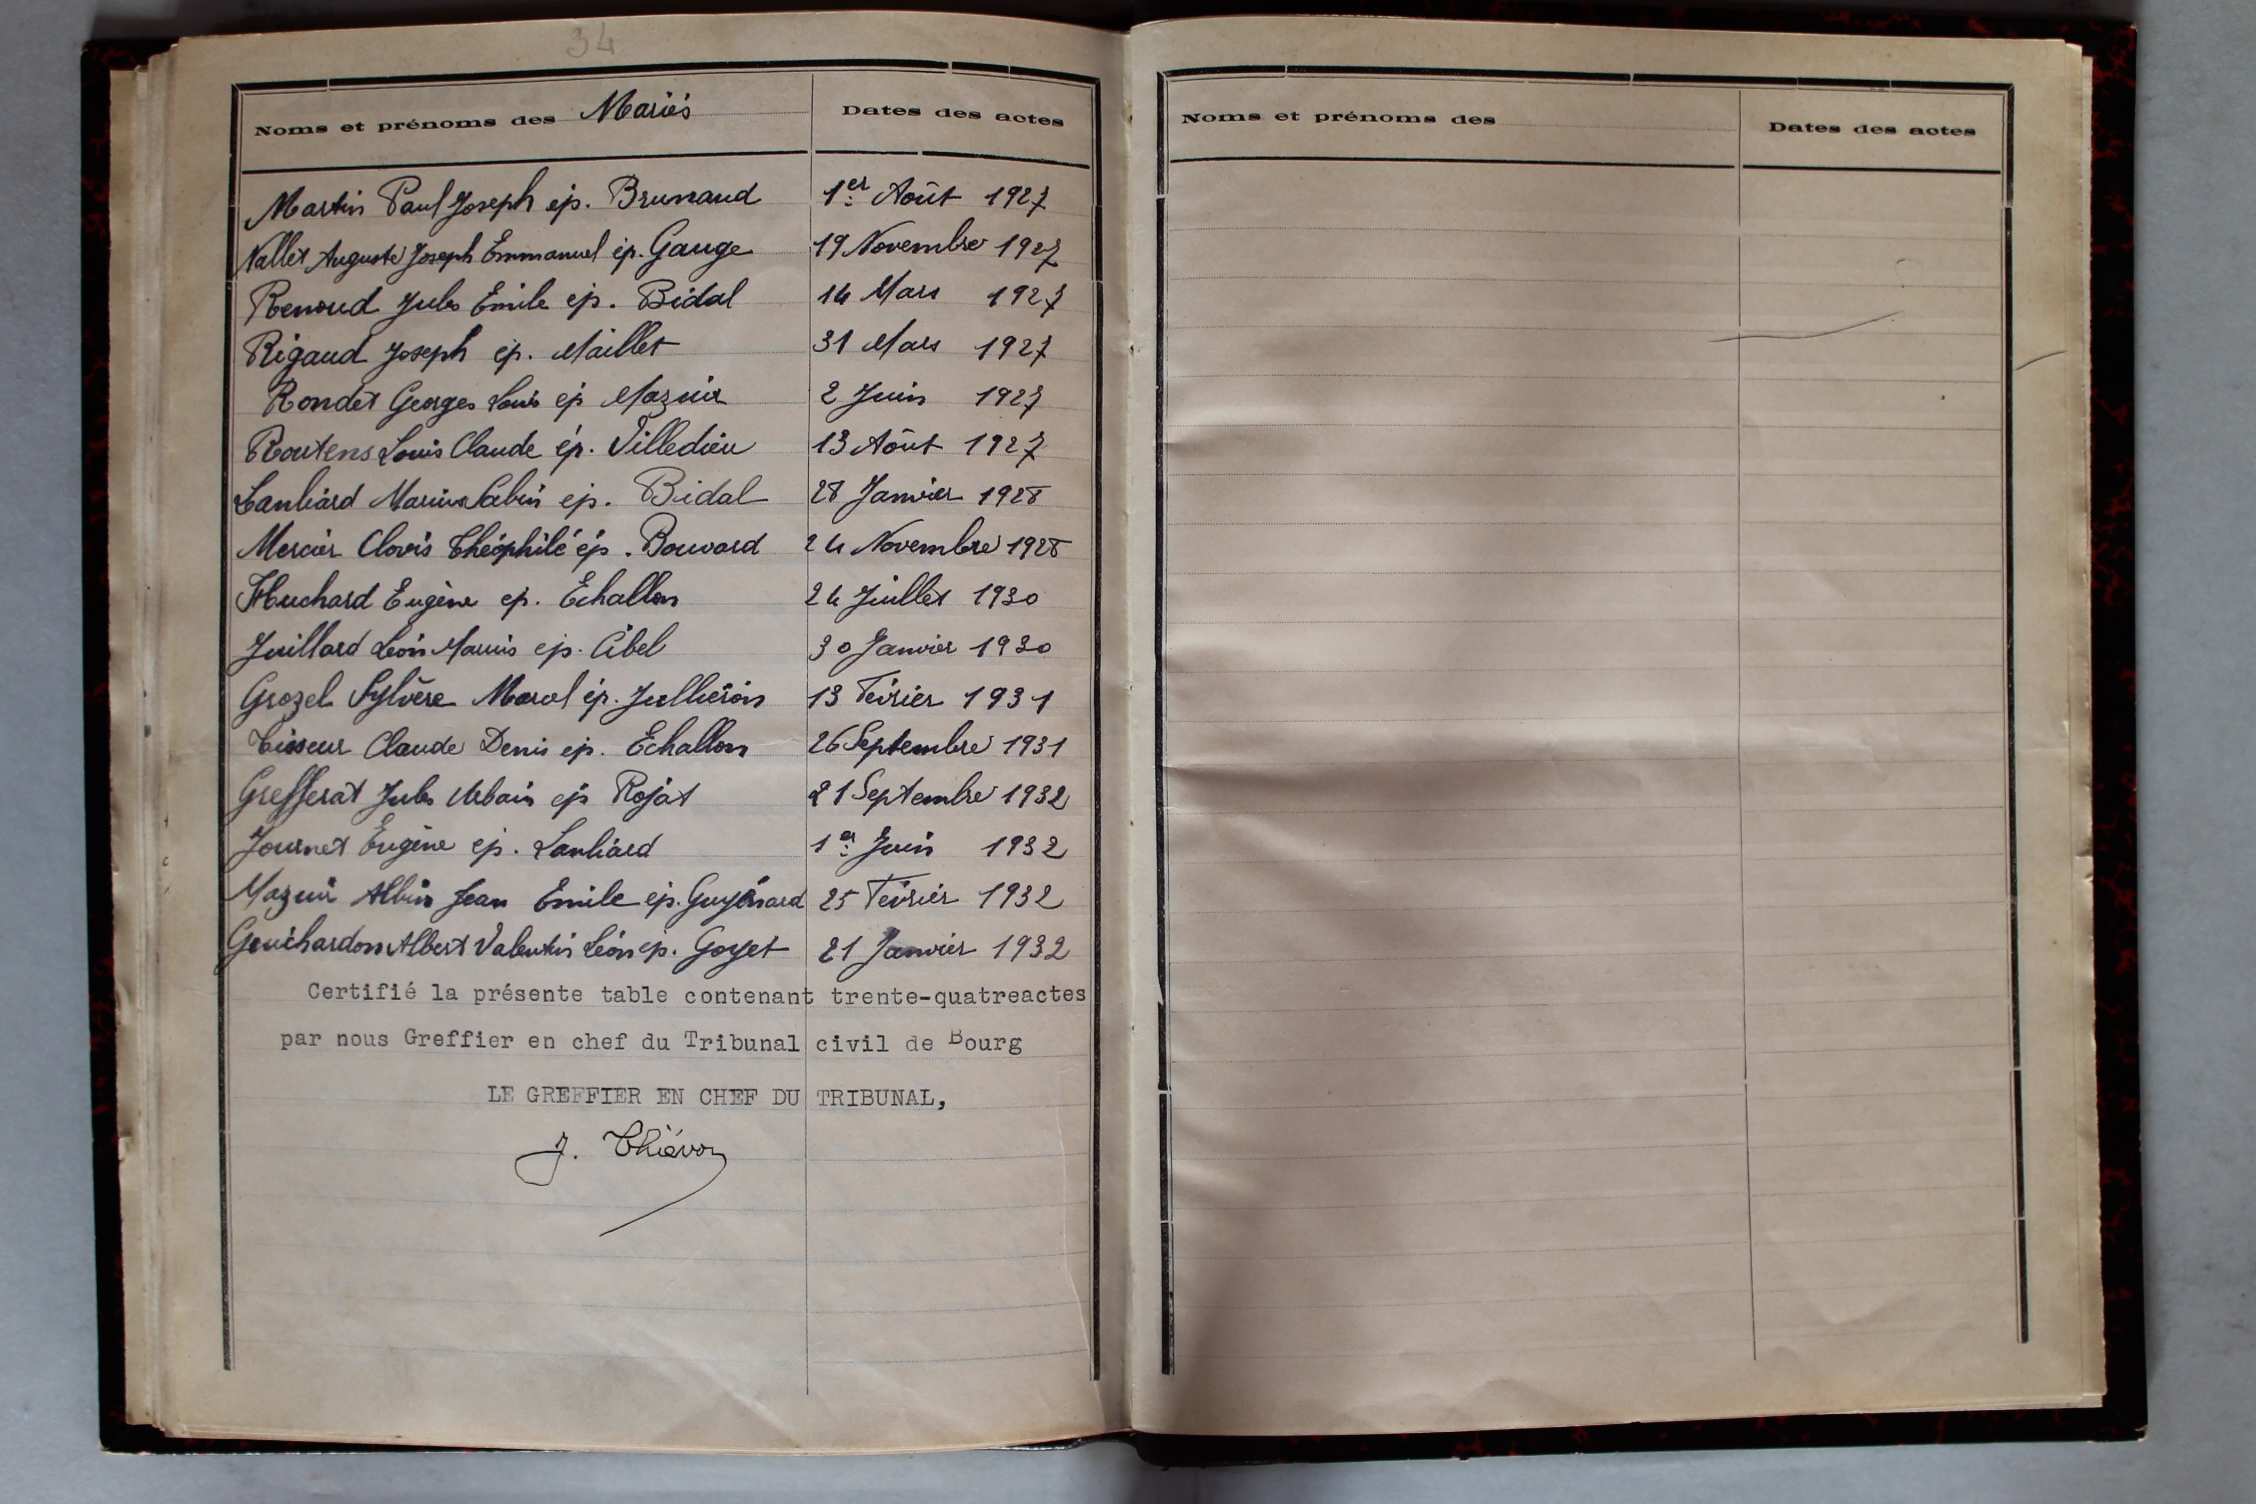 34
Noms et prénoms des Mariés Dates des actes
Martin Paul Joseph ép. Brunaud 1er Août 1927
Vallet Auguste Joseph Emmanuel ép. Gauge 19 Novembre 1927
Renoud Jules Emile ép. Bidal 14 Mars 1927
Rigaud Joseph ép. Maillet 31 Mars 1927
Rondet Georges Louis ép Mazuir 2 Juin 1927
Routens Louis Claude ép. Villedieu 13 Août 1927
Lanliard Marius Sabin ép. Bidal 28 Janvier 1928
Mercier Clovis Théophile ép. Bouvard 24 Novembre 1928
Huchard Eugène ep. Echallon 24 Juillet 1930
Juillard Léon Marius ép. Cibel 30 Janvier 1930
Grozel Sylvère Marcel ép. Jullieron 13 Février 1931
Tisseur Claude Denis ép. Echallon 26 Septembre 1931
Grefferat Jules Urbain ép Rojat 21 Septembre 1932
Journet Eugène ép. Lanliard 1er Juin 1932
Mazuir Albin Jean Emile ép. Guyénard 25 Février 1932
Guichardon Albert Valentin Léon ép. Goyet 21 Janvier 1932
Certifié la présente table contenant trente-quatreactes
par nous Greffier en chef du Tribunal civil de Bourg
LE GREFFIER EN CHEF DU TRIBUNAL,
J. Thiévon
Noms et prénoms des Dates des actes